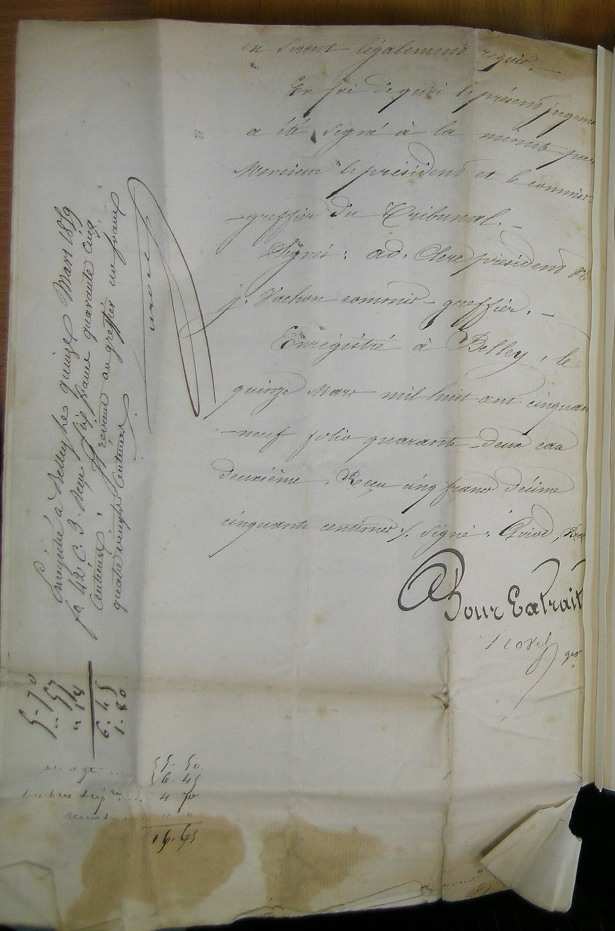 en seront légalement requis. -
En foi de quoi le présent jugement
a été signé à la minute par
Monsieur le président et le commis
-greffier du Tribunal. -
Signé: ad. président &
j. Vachon commis-greffier. -
Enregistré à Belley, le
quinze Mars mil huit cent cinquan
-neuf folio quarante-deux case
deuxième. Reçu cinq francs décime
cinquante centimes /. Signé:
Pour Extrait
Enregistré à Belley le quinze Mars 1859
fo 42 C. 3. Reçu six francs quarante cinq
centimes. revient au greffier un franc
quatre vingts centimes
5.70
" 57
" 18
6.45
1.80
55. 50
6. 45
4. 70